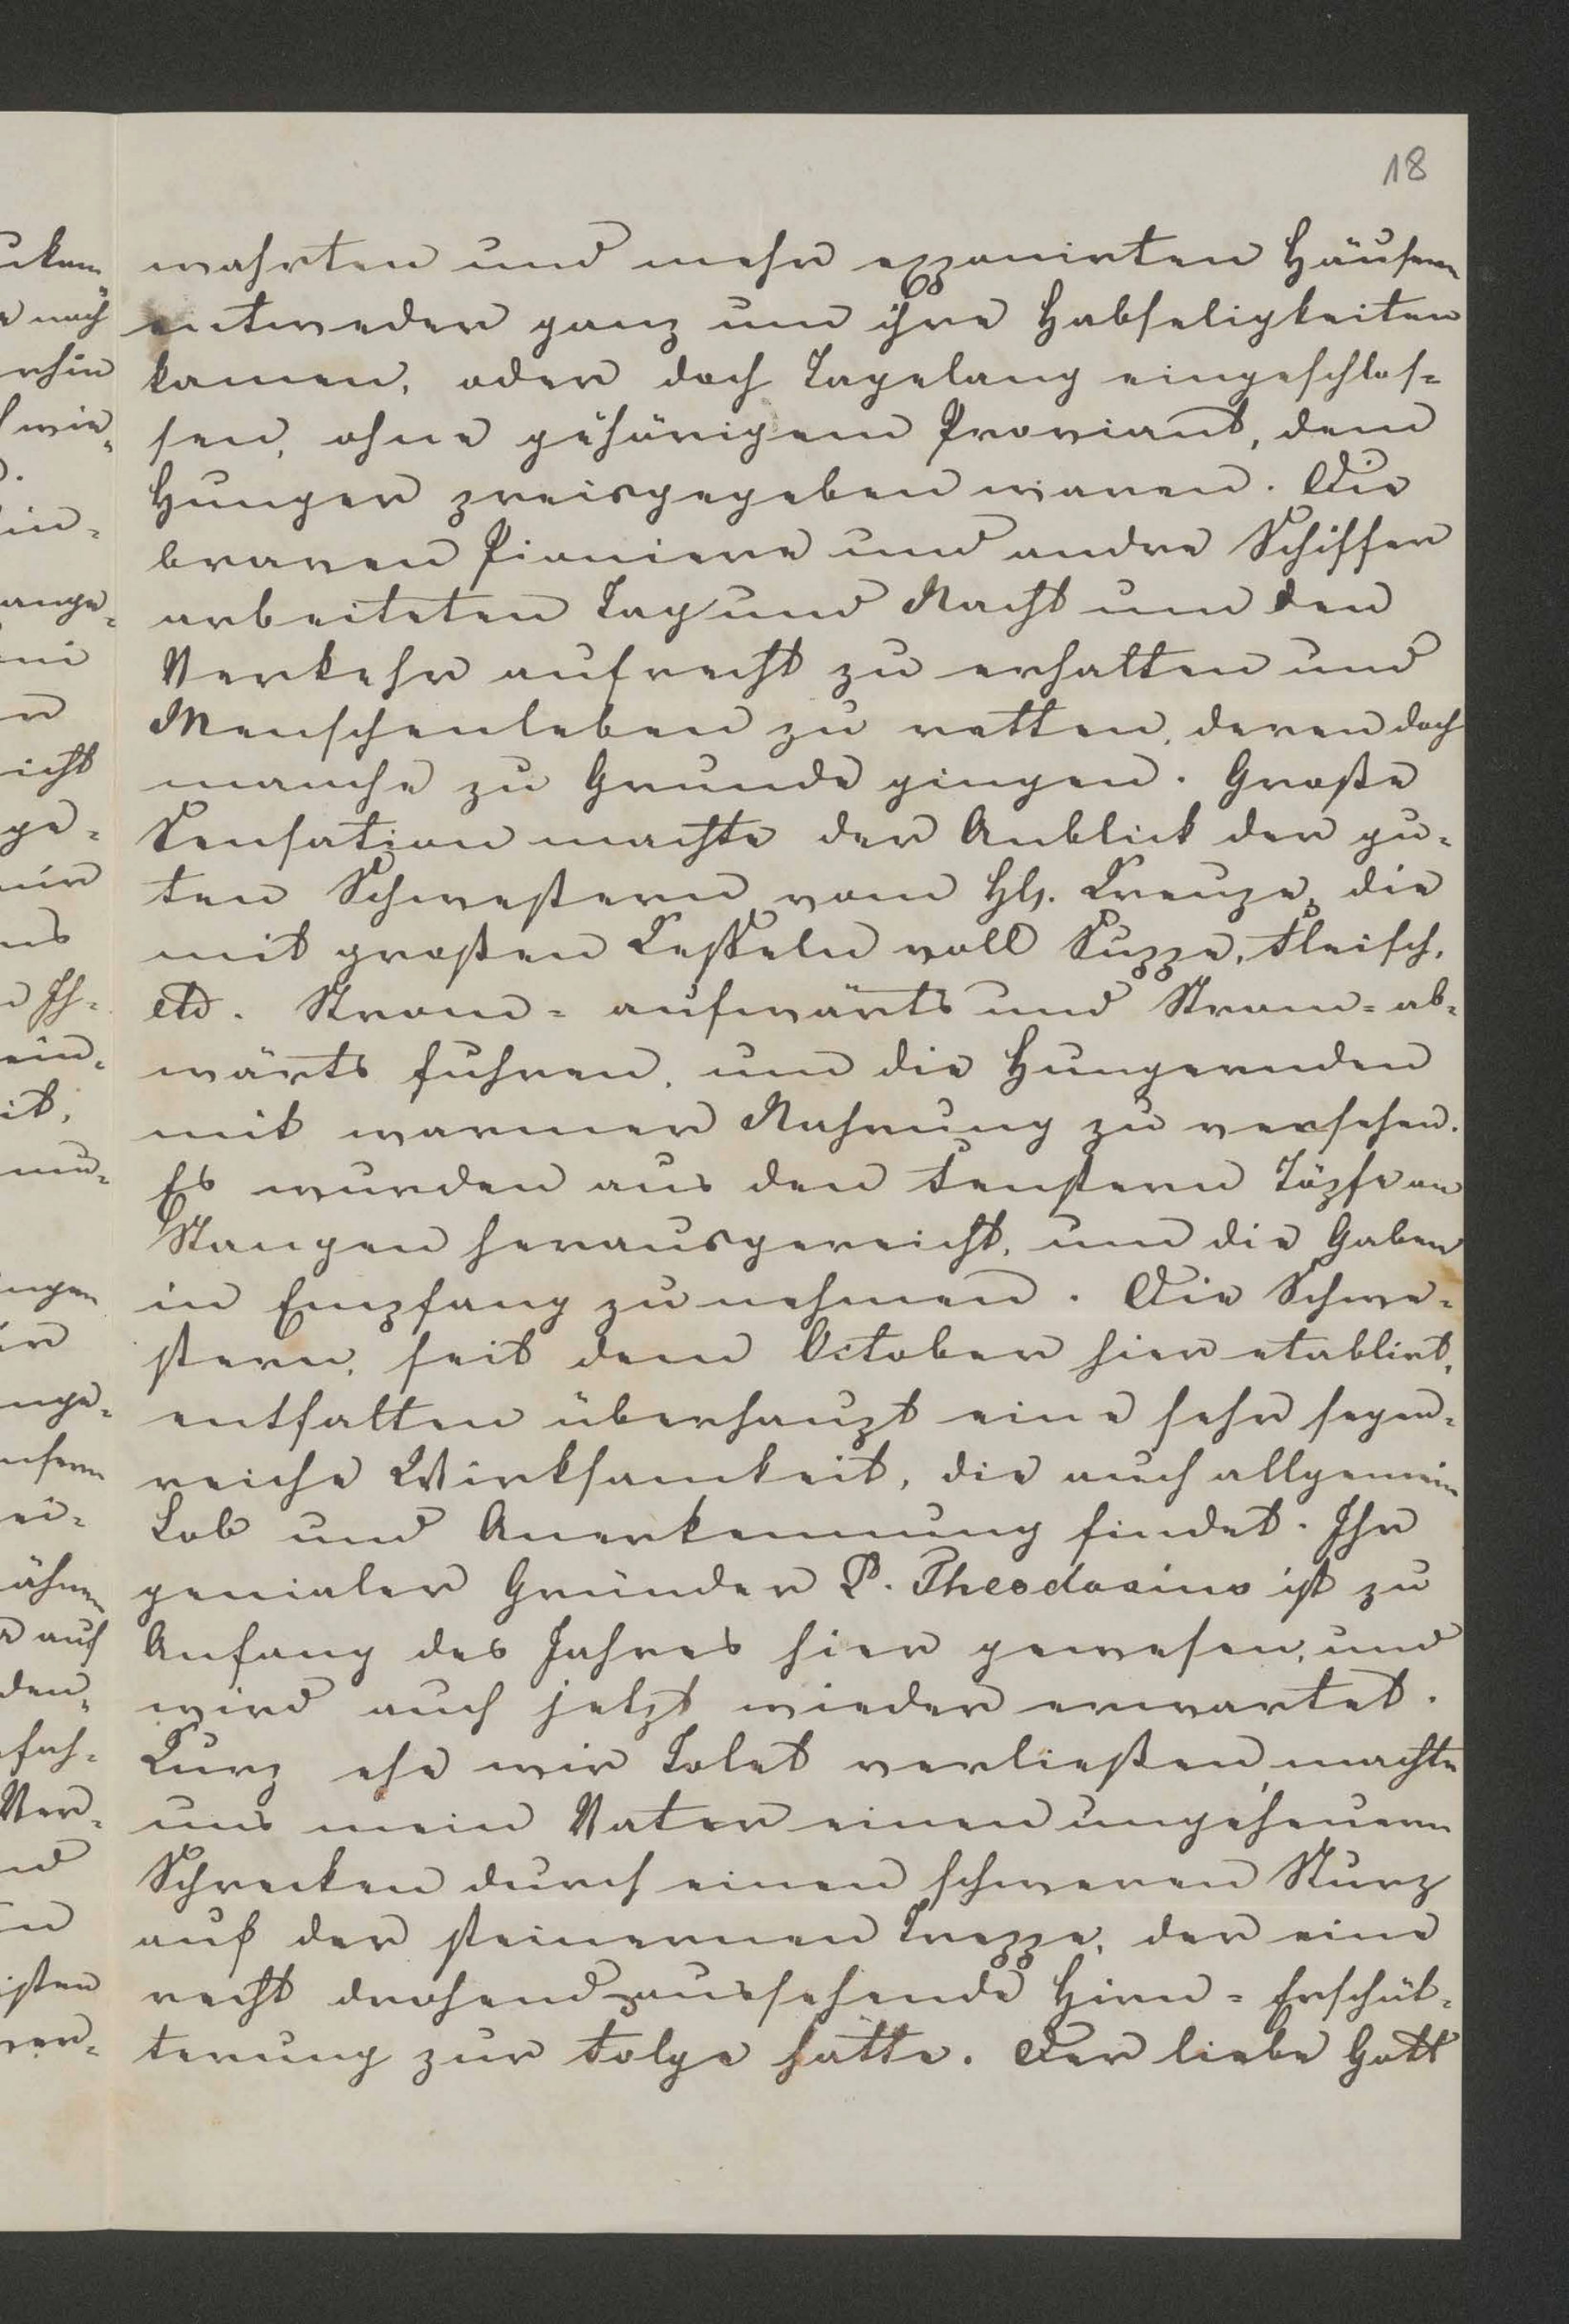 18
wahrten und mehr exponirten Häusern
entweder ganz um ihre Habseligkeiten
kamen, oder doch Tagelang eingeschlos-
sen, ohne gehörigem Proviant, dem
Hunger preisgegeben waren. Die
braven Pioniere und andre Schiffer
arbeiteten Tag und Nacht um den
Verkehr aufrecht zu erhalten und
Menschenleben zu retten, deren doch
manche zu Grunde gingen. Große
Sensation machte der Anblick der gu-
ten Schwestern vom Hlg. Kreuze, die
mit großen Kesseln voll Suppe, Fleisch,
etc. Strom- aufwärts und Strom- ab-
wärts fuhren, um die Hungernden
mit warmer Nahrung zu versehen.
Es wurden aus den Fenstern Töpfe an
Stangen herausgereicht, um die Gaben
in Empfang zu nehmen. Die Schwe-
stern, seit dem October hier etablirt,
entfalten überhaupt eine sehr segen-
reiche Wirksamkeit, die auch allgemein
Lob und Anerkennung findet. Ihr
genialer Gründer P. Theodosius ist zu
Anfang des Jahres hier gewesen, und
wird auch jetzt wieder erwartet.
Kurz ehe wir Tolet verließen machte
uns mein Vater einen ungeheuern
Schrecken durch einen schweren Sturz
auf der steinernen Treppe, der eine
recht drohend aussehende Hirn- Erschüt-
terung zur Folge hatte. Der liebe Gott